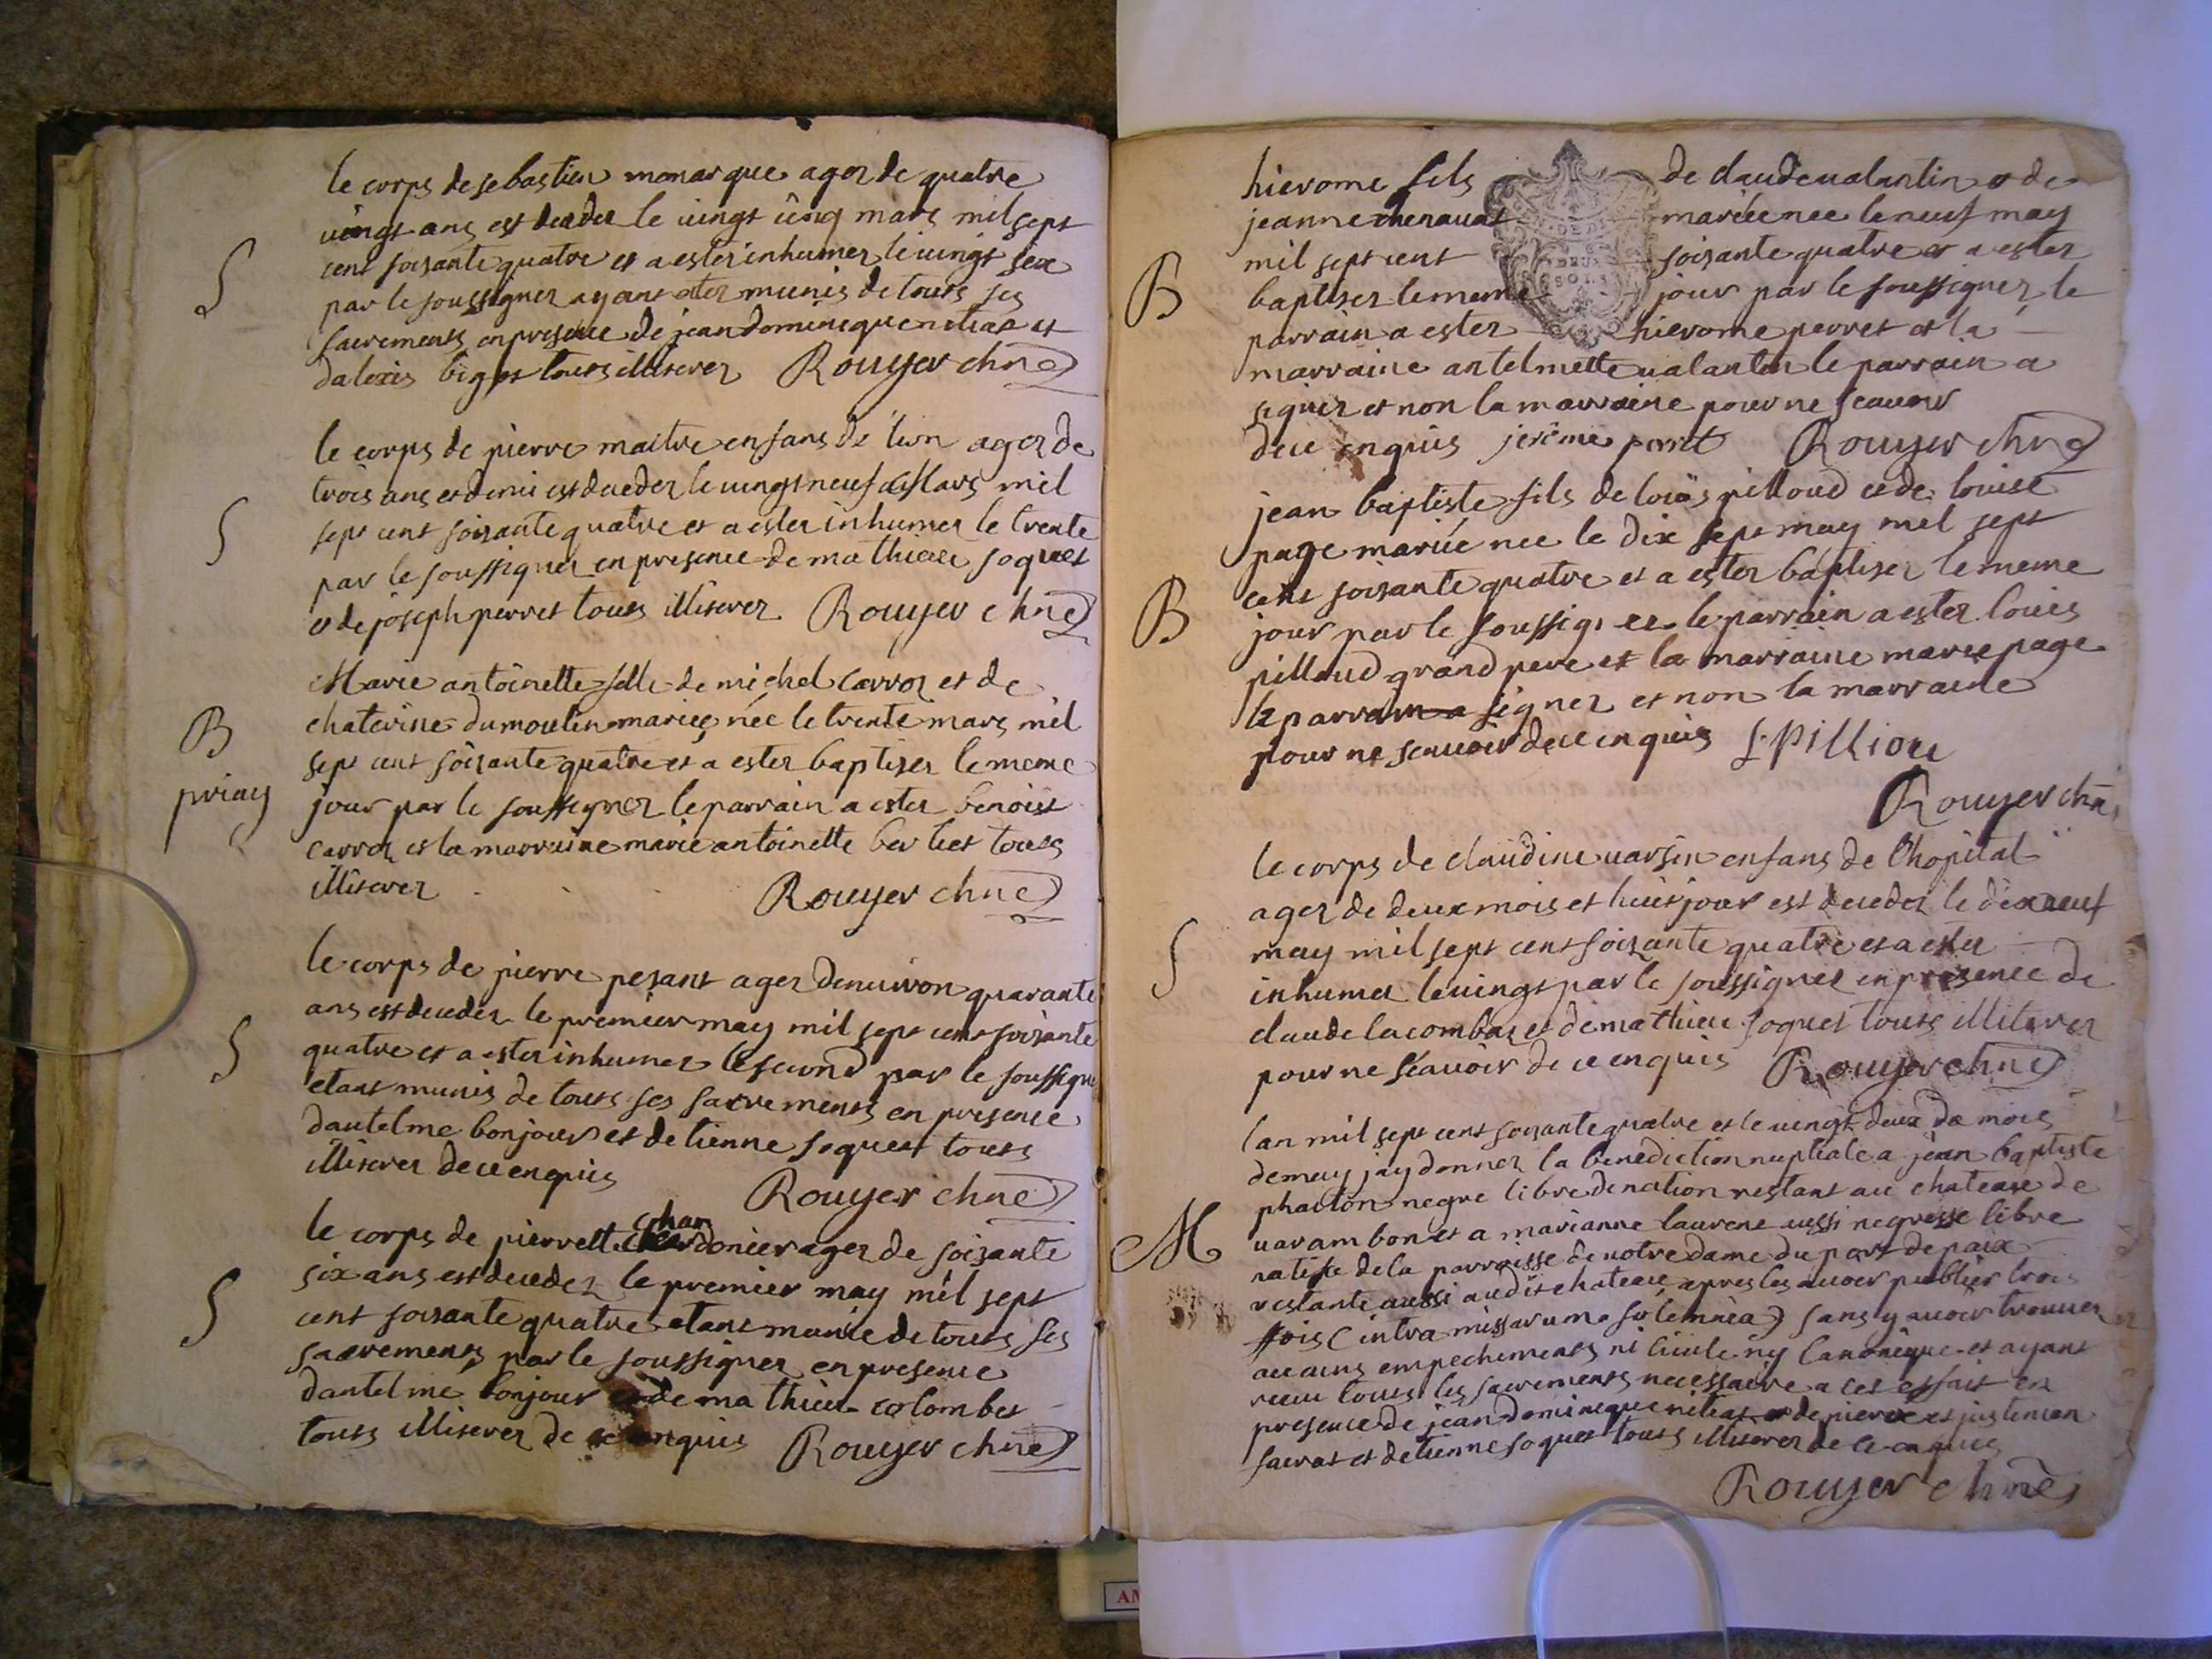 le corps de sebastien monarque ager de quatre
vingt ans est deceder le vingt cinq mars mil sept
S
cent soixante quatre et a ester inhumer le vingt six
par le soussigner ayant ester munis de touts ses
sacrements en presence de jean dominique et
dalexis touts illiterer Rouyer chne
le corps de pierre maitre enfans de lion ager de
trois ans et demi est deceder le vingt neuf Mars mil
S
sept cent soixante quatre et a ester inhumer le trente
par le soussigner en presence de mathieu soquet
et de joseph perret touts illiterer Rouyer chne
Marie antoinette fille de michel carroz et de
chaterine dumoulin mariee née le trente mars mil
B
sept cent soixante quatre et a ester baptiser le meme
priay
jour par le soussigner le parrain a ester benoist
carroz et la marraine marie antoinette berliet touts
illiterer Rouyer chne
le corps de pierre pesant ager denviron quarante
ans est deceder le premier may mil sept cent soixante
S
quatre et a ester inhumer le second par le soussigne
etant munis de touts ses sacrements en presence
dantelme bonjour et detienne soquet touts
illiterer de ce enquis
Rouyer chne
char
le corps de pierrette donier ager de soixante
six ans est deceder le premier may mil sept
S
cent soixante quatre etant munie de touts ses
sacrements par le soussigner en presence
dantelme bonjour et de mathieu colombet
touts illiterer de ce enquis Rouyer chne
hierome fils de claude valantin et de
jeanne chenavat mariée nee le neuf may
B
mil sept cent soixante quatre et a ester
baptiser le meme jour par le soussigner le
parrain a ester hierome perret et la
marraine antelmette valantin le parrain a
signer et non la marraine pour ne scavoir
de ce enquis jerème perret Rouyer chne
jean baptiste fils de loüis pilloud et de louise
page mariée nee le dix sept may mil sept
cent soixante quatre et a ester baptiser le meme
B
jour par le soussigner le parrain a ester louis
pilloud grand pere et la marraine marie page
le parrain a signer et non la marraine
pour ne scavoir de ce enquis L pilliou
Rouyer chne
le corps de claüdine varsin enfans de lhopital
ager de deux mois et huit jour est deceder le dix neuf
S
may mil sept cent soixante quatre et a ester
inhumer le vingt par le soussigner en presence de
claude lacombaz et de mathieu soquet touts illiterer
pour ne scavoir de ce enquis Rouyer chne
lan mil sept cent soixante quatre et le vingt deux de mois
de may jay donner la benediction nuptiale a jean baptiste
phaeton negre libre de nation restant au chateau de
M
varambon et a marianne laurene aussi negresse libre
natife de la parroisse de notre dame du port de paix
restante aussi audit chateau apres les avoir publier trois
fois (intra missarum solemnia) sans y avoir trouver
aucuns empechements ni civile ny canonique et ayant
recu touts les sacrements necessaire a cet effait en
presence de jean dominique et de pierre et
et detienne soquet touts illiterer de ce enquis
Rouyer chne